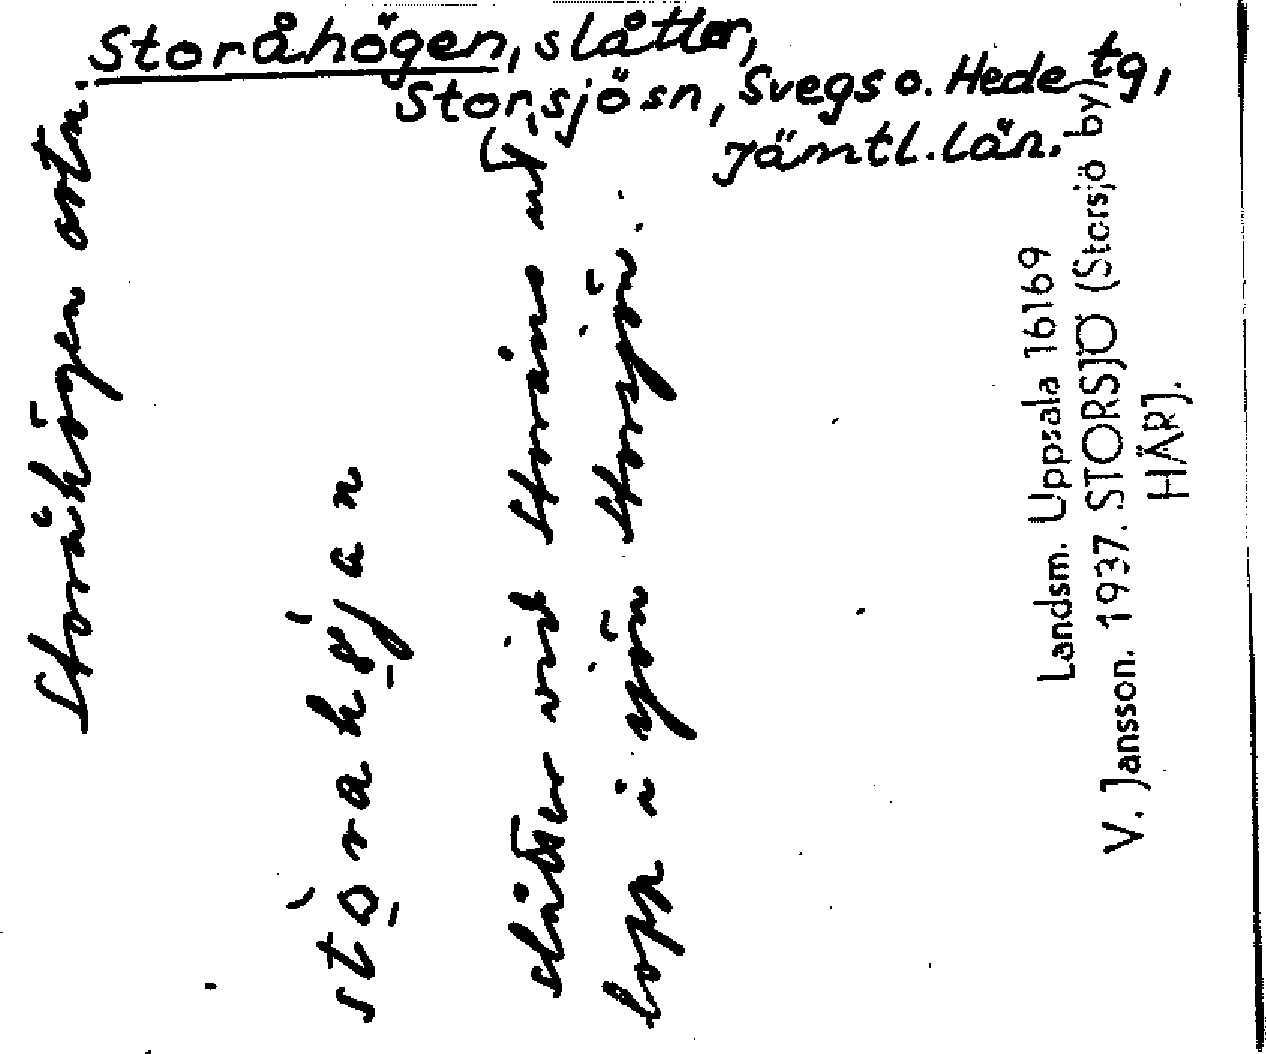 Storåhögen, slåtter,
Storsjösn, Svegs o. Hede tg,
Jämtl. län.
Storåhögen ortn.
stòrahǿjan
slåtter vid Storåns ut-
lopp i sjön Storsjön.
Landsm. Uppsala 16169
V. Jansson. 1937. STORSJÖ (Storsjö by)
HÄRJ.